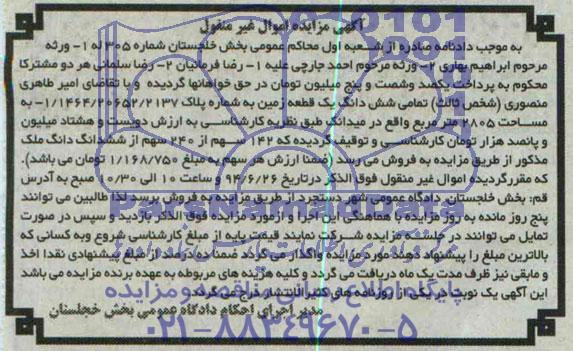 آگهی مزایده اموال غیر منقول
به موجب دادنامه صادره از شعبه اول محاکم عمومی بخش خلجستان شماره ۳۰۵ له ۱- ورثه
مرحوم ابراهیم بهاری ۲- ورثه مرحوم احمد جارچی علیه ۱- رضا فرمانیان ۲- رضا سلمانی هر دو مشترکا
محکوم به پرداخت یکصد وشصت و پنج میلیون تومان در حق خواهانها گردیده و با تقاضای امیر طاهری
منصوری (شخص ثالث) تمامی شش دانگ یک قطعه زمین به شماره پلاک ۱/۱۴۶۴/۲۰۶۵۲/۲۱۳۷- به
مساحت ۲۸۰۵ متر مربع واقع در میدانک طبق نظریه کارشناسی به ارزش دویست و هشتاد میلیون
و پانصد هزار تومان کارشناسی و توقیف گردیده که ۱۴۲ سهم از ۲۴۰ سهم از ششدانگ دانگ ملک
مذکور از طریق مزایده به فروش می رسد (ضمنا ارزش هر سهم به مبلغ ۱/۱۶۸/۷۵۰ تومان می باشد).
که مقرر گردیده اموال غیر منقول فوق الذکر درتاریخ ۹۴/۶/۲۶ و ساعت ۱۰ الی ۱۰/۳۰ صبح به آدرس
قم: بخش خلجستان. دادگاه عمومی شهر دستجرد از طریق مزایده به فروش برسد لذا طالبین می توانند
پنج روز مانده به روز مزایده با هماهنگی این اجرا و ازمورد مزایده فوق الذکر بازدید و سپس در صورت
تمایل می توانند در جلسه مزایده شرکت نمایند قیمت پایه از مبلغ کارشناسی شروع وبه کسانی که
بالاترین مبلغ را پیشنهاد دهند مورد مزایده واگذار می گردد ضمنا ده درصد از مبلغ پیشنهادی نقدا اخذ
و مابقی نیز ظرف مدت یک ماه دریافت می گردد و کلیه هزینه های مربوطه به عهده برنده مزایده می باشد
این آگهی یک نوبت در یکی از روزنامه های کثیر الانتشار درج می گردد.
مدیر اجرای احکام دادگاه عمومی بخش خجلستان
پایگاه اطلاع رسانی مناقصه و مزایده
۰۲۱-۸۸۳۴۹۶۷۰-۵